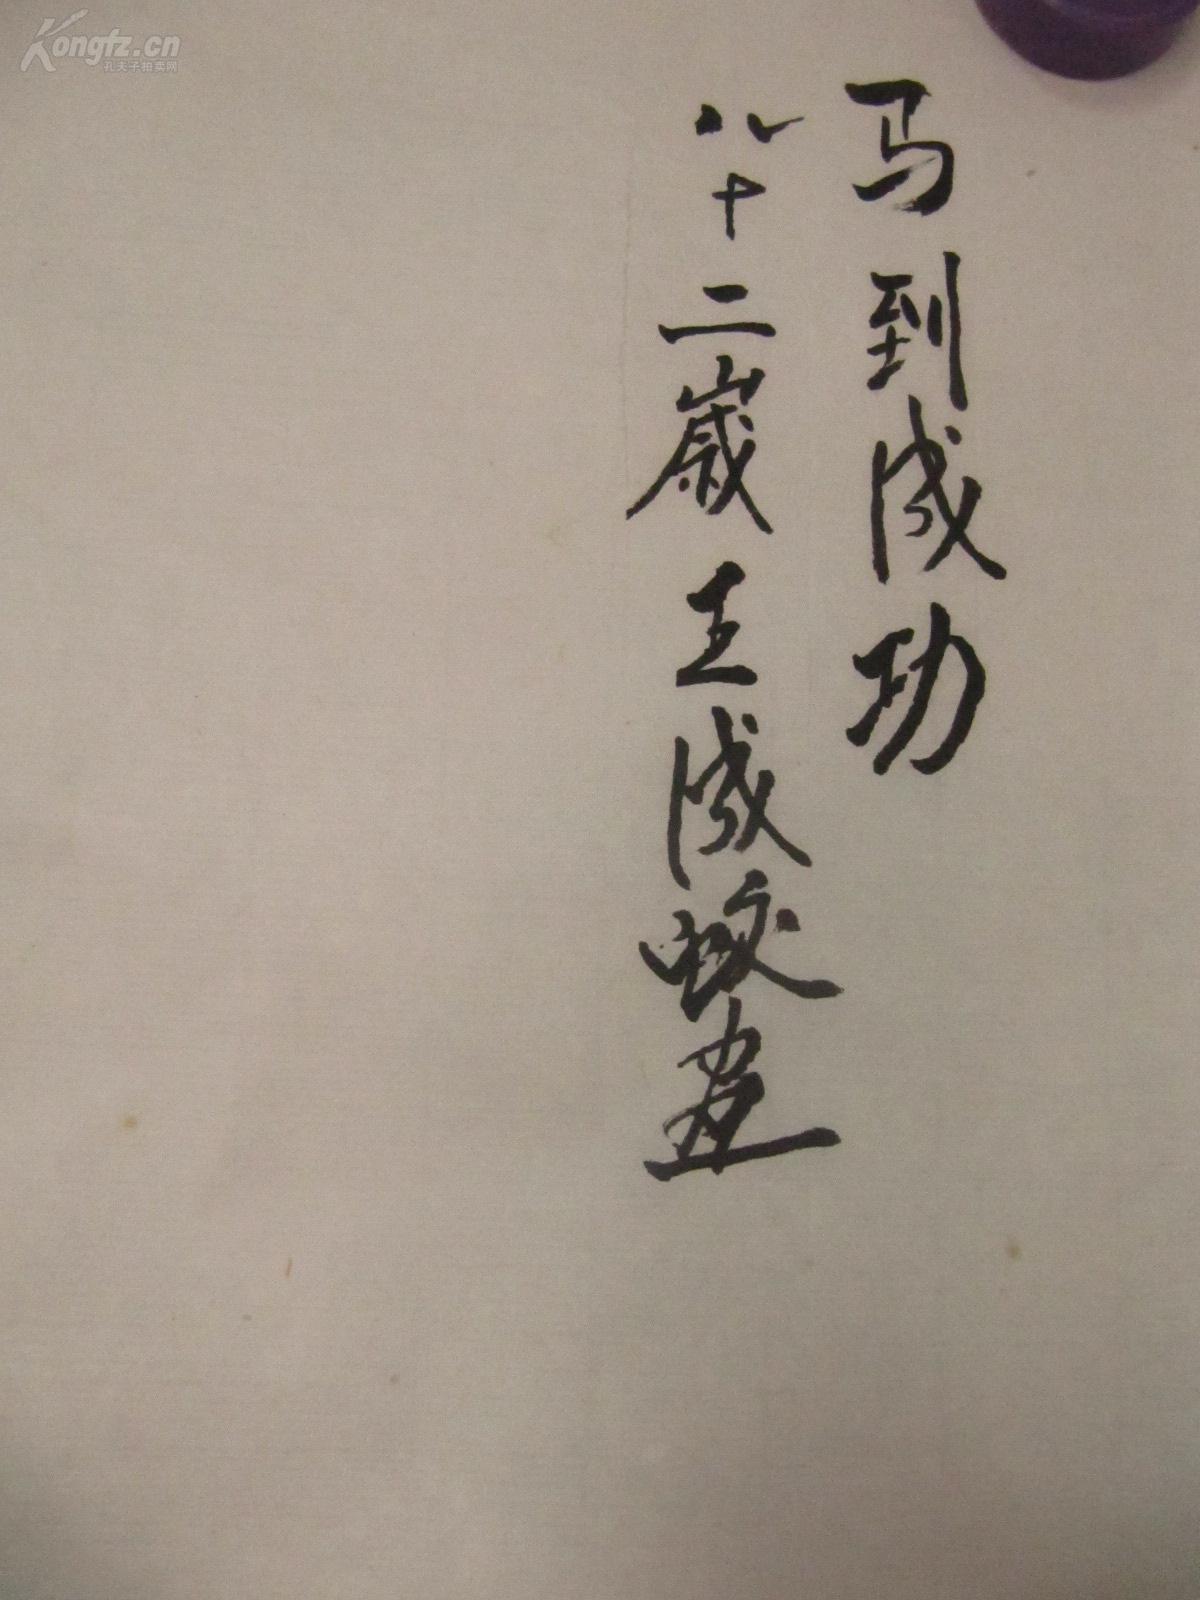 马到成功
八十二歲王成蛟画
Kongfz.cn
孔夫子拍卖网